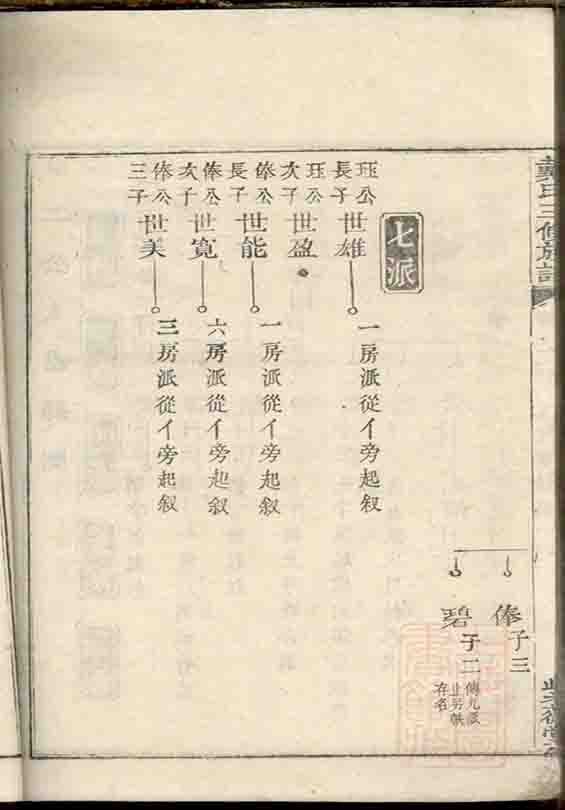 戴氏三修族譜
俸子三
碧子二
傳九派
止另帙
存名
七派
玨公長子世雄
一房派從亻旁起叙
玨公次子世盈
俸公長子世能
一房派從亻旁起叙
俸公次子世寬
六房派從亻旁起叙
俸公三子世美
三房派從亻旁起叙